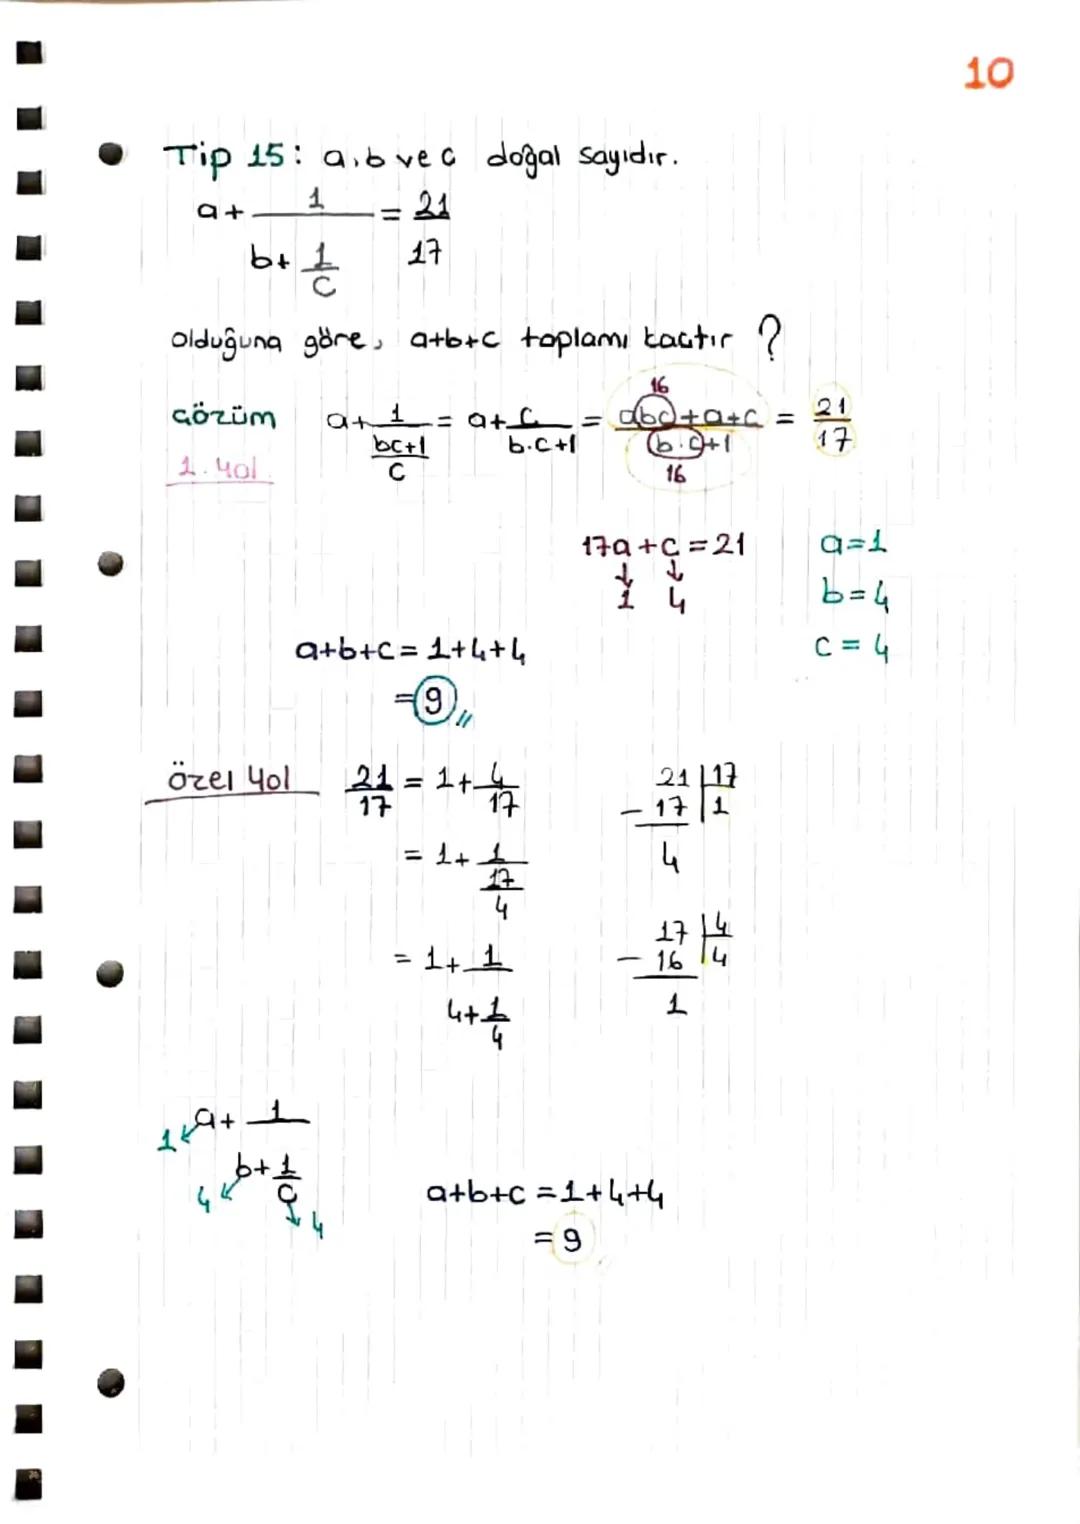 10
Tip 15: a,b ve c doğal sayıdır.
a + 1/(b + 1/c) = 21/17
olduğuna göre, a+b+c toplamı kaçtır ?
Çözüm
1. Yol
a + 1/((bc+1)/c) = a + c/(b.c+1) = (abc+a+c)/(b.c+1) = 21/17
16
16
17a + c = 21
↓ ↓
1 4
a=1
b=4
c=4
a+b+c = 1+4+4
= 9 //
özel Yol
21/17 = 1 + 4/17
= 1 + 1/(17/4)
= 1 + 1/(4 + 1/4)
21 | 17
- 17 | 1
4
17 | 4
- 16 | 4
1
a + 1/(b + 1/c)
1
4
4
a+b+c = 1+4+4
= 9